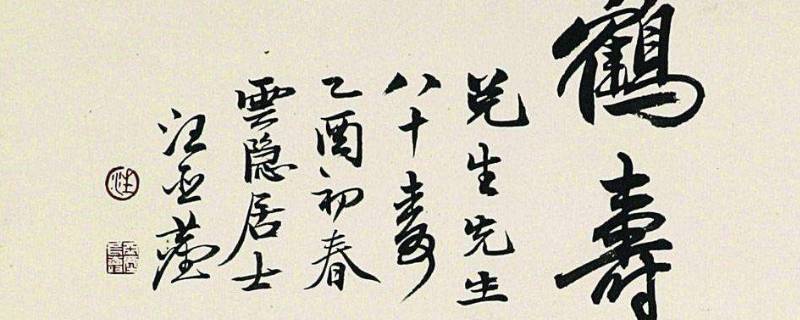 鶴壽
兑生先生
八十壽
乙酉初春
雲隐居士
汪亚
汪